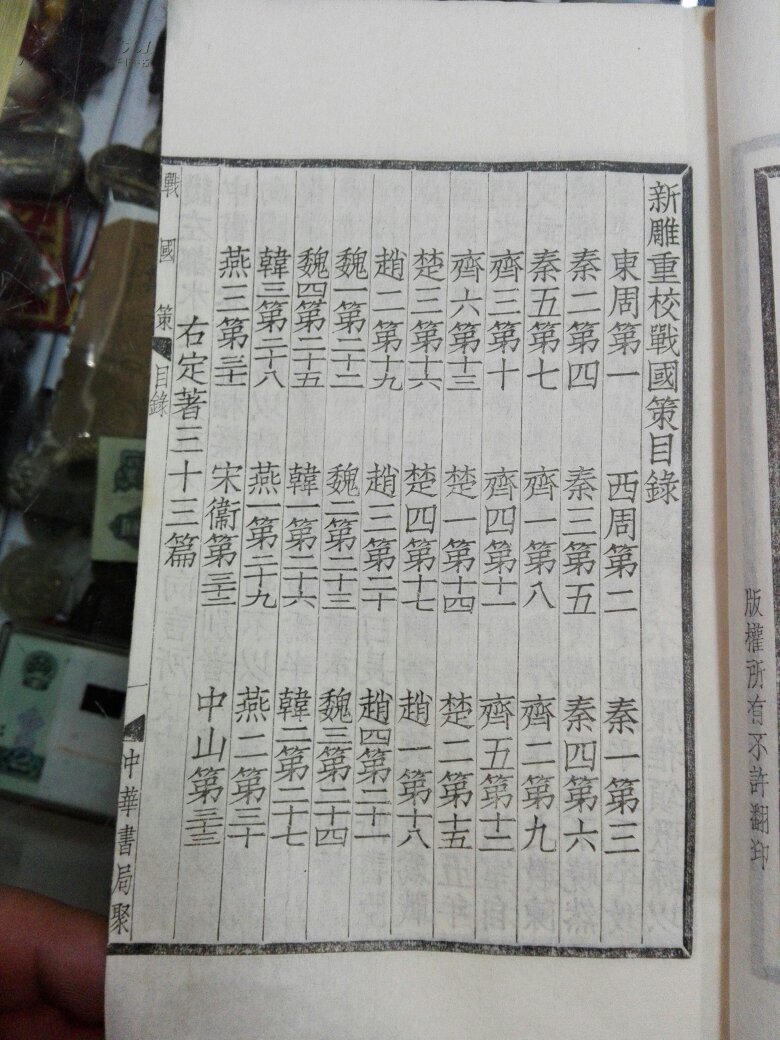 版權所有不許翻印
新雕重校戰國策目錄
東周第一 西周第二 秦一第三
秦二第四 秦三第五 秦四第六
秦五第七 齊一第八 齊二第九
齊三第十 齊四第十一 齊五第十二
齊六第十三 楚一第十四 楚二第十五
楚三第十六 楚四第十七 趙一第十八
趙二第十九 趙三第二十 趙四第二十一
魏一第二十二 魏二第二十三 魏三第二十四
魏四第二十五 韓一第二十六 韓二第二十七
韓三第二十八 燕一第二十九 燕二第三十
燕三第三十一 宋衞第三十二 中山第三十三
右定著三十三篇
戰國策 目錄 一 中華書局聚